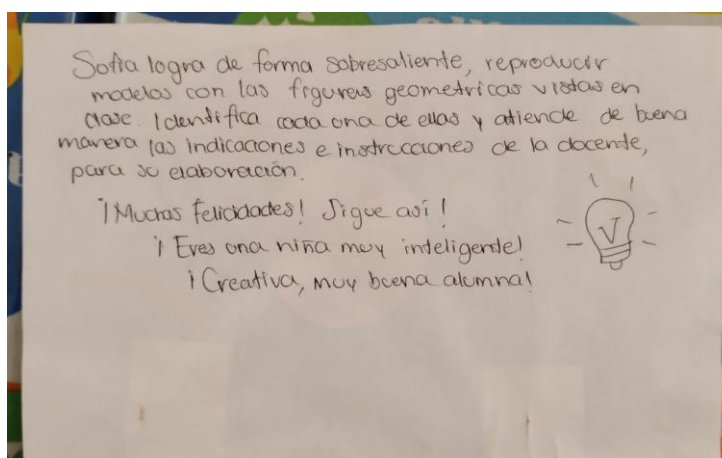 Sofia logra de forma sobresaliente, reproducir
modelos con las figuras geometricas vistas en
clase. Identifica cada una de ellas y atiende de buena
manera las indicaciones e instrucciones de la docente,
para su elaboración.
¡Muchas felicidades! Sigue así!
¡Eres una niña muy inteligente!
¡Creativa, muy buena alumna!